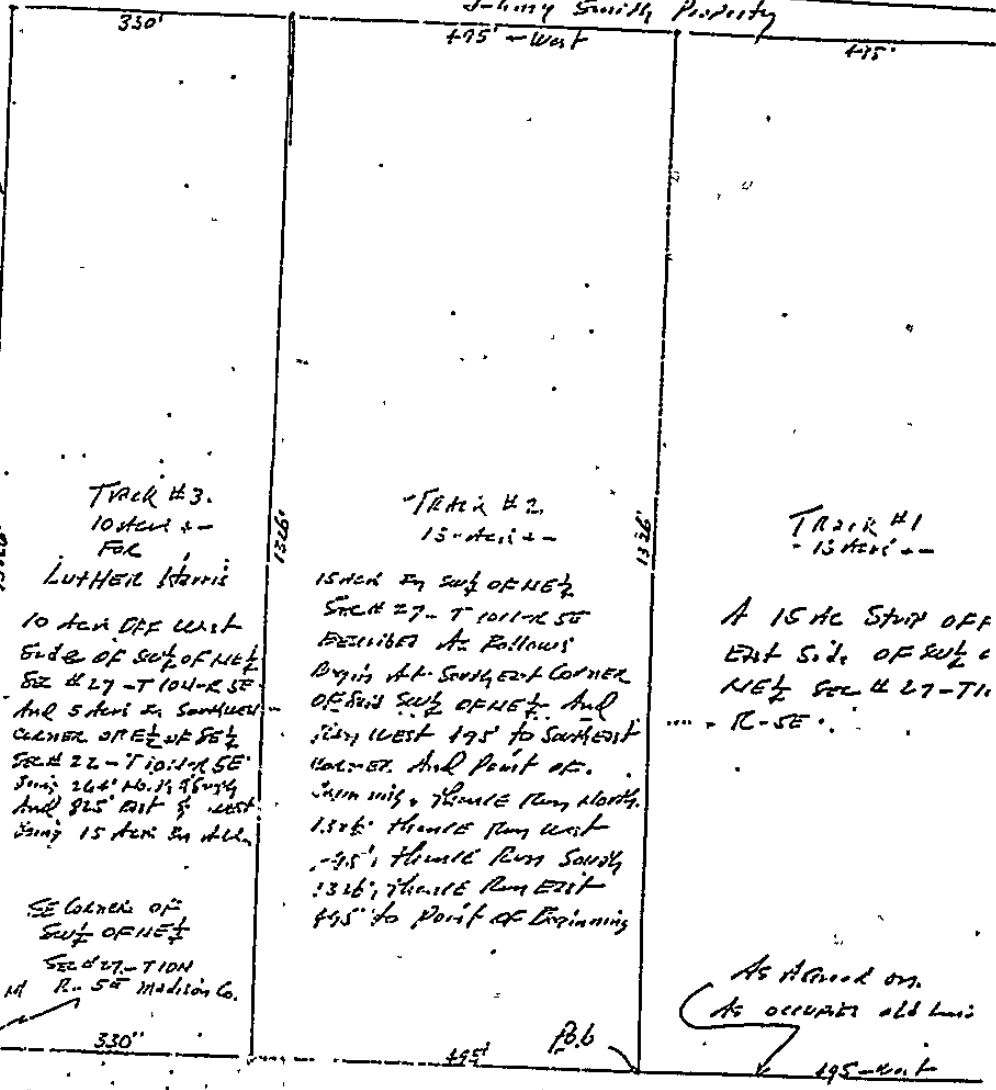 Johnny Smith Property
330'
495' - West
495'
Track #3.
10 Acres +-
For
LUTHER Harris
10 Acres OFF West
Side OF SW¼ OF NE¼
Sec #27-T10N-R5E
And 5 Acres In Southwest
CORNER OF E½ OF SE¼
Sec# 22-T10N-R5E
Being 264' North & South
And 825' East & West
Being 15 Acres In All.
SE Corner OF
SW¼ OF NE¼
SEC #27-T10N
R-5E Madison Co.
330"
1326'
Track #2
15-Acres +-
15 Acres In SW¼ OF NE¼
Sec# 27-T10N-R5E
Described As Follows
Begin At SouthEast CORNER
OF Said SW¼ OF NE¼ And
Run WEST 495' to SouthEast
Corner And Point OF
thence Run North
1326' thence Run West
495', thence Run South
1326', thence Run East
495' to Point OF Beginning
495'
P.O.B
1326'
Track #1
- 15 Acres +-
A 15 Ac Strip OFF
East Side OF SW¼
NE¼ Sec #27-T10
R-5E.
As Agreed on.
As occupied old
495-West